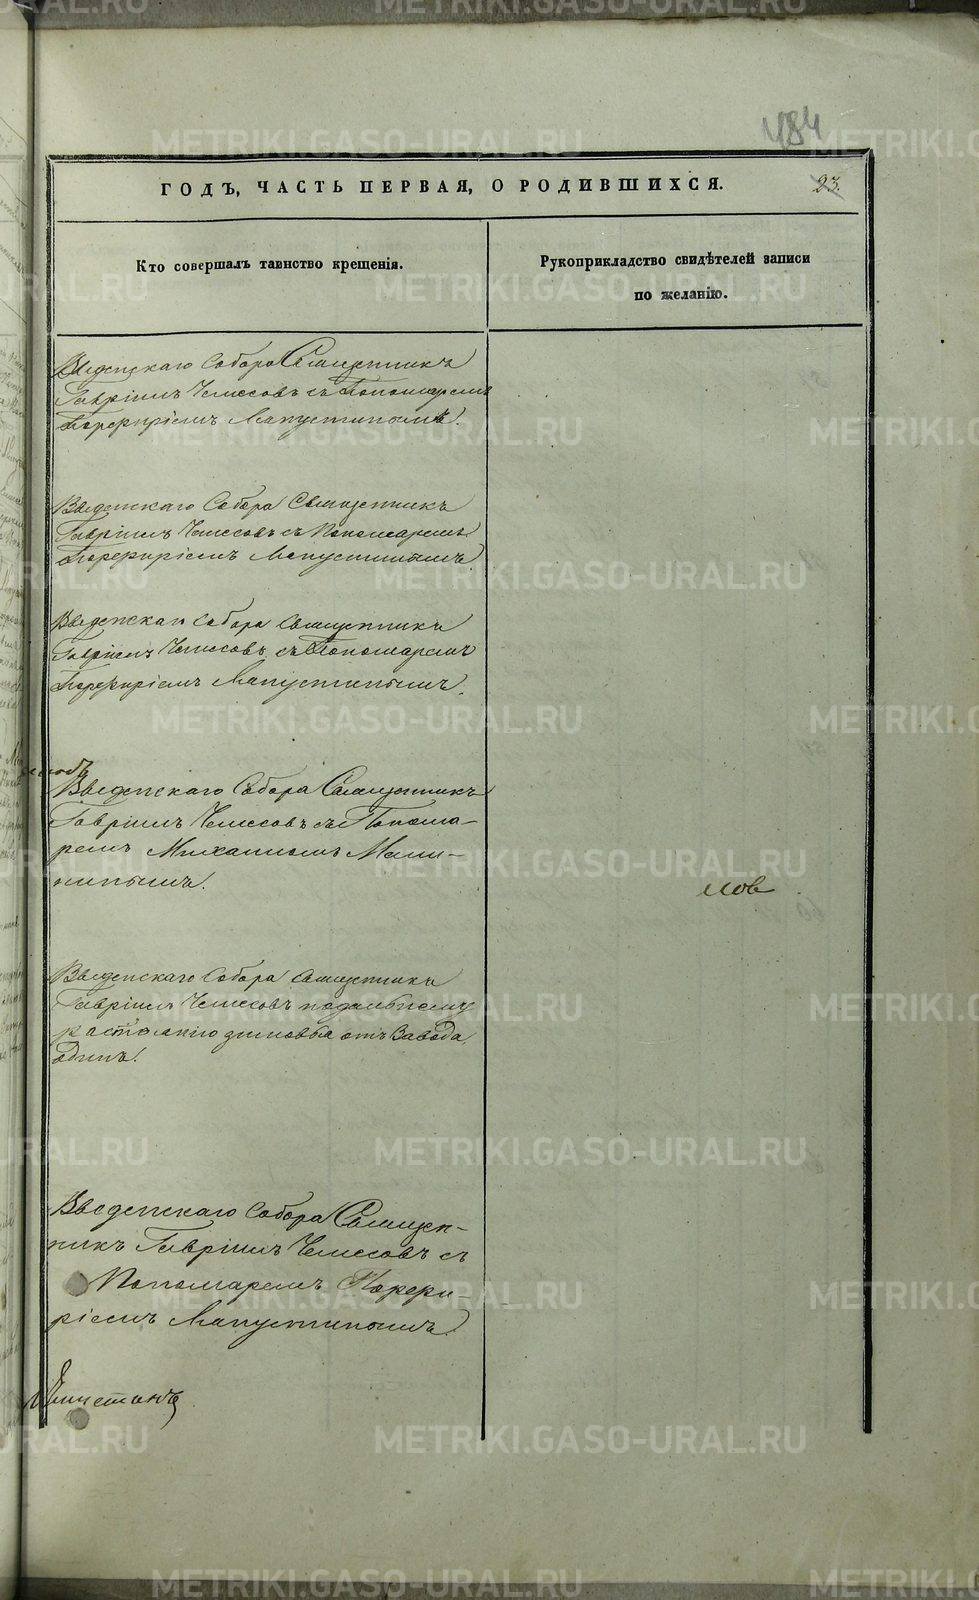 484
ГОДЪ, ЧАСТЬ ПЕРВАЯ, О РОДИВШИХСЯ.
23.
Кто совершалъ таинство крещенія.
Рукоприкладство свидѣтелей записи
по желанію.
Введенскаго Собора Священникъ
Гавріилъ Чемесовъ съ Пономаремъ
Порфиріемъ Лапустинымъ.
Введенскаго Собора Священникъ
Гавріилъ Чемесовъ съ Пономаремъ
Порфиріемъ Лапустинымъ
Введенскаго Собора Священникъ
Гавріилъ Чемесовъ съ Пономаремъ
Порфиріемъ Лапустинымъ.
Введенскаго Собора Священникъ
Гавріилъ Чемесовъ съ Понома-
ремъ Михаиломъ Мами-
нымъ.
мов
Введенскаго Собора Священникъ
Гавріилъ Чемесовъ по дальнему
растоянію зимовья отъ Завода
одинъ!
Введенскаго Собора Священ-
никъ Гавріилъ Чемесовъ съ
Пономаремъ Порфи-
ріемъ Лапустинымъ.
METRIKI.GASO-URAL.RU